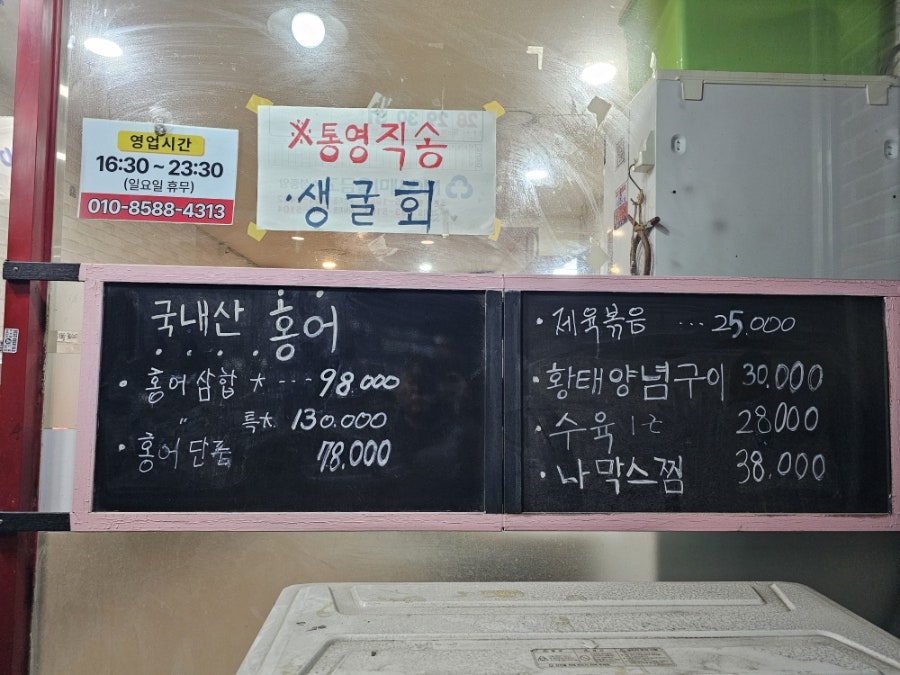 영업시간
16:30 ~ 23:30
(일요일 휴무)
010-8588-4313
※통영직송
·생굴회
국내산 홍어
· 홍어삼합 大 --- 98.000
〃 특大 130.000
· 홍어단품 78.000
· 제육볶음 ... 25.000
· 황태양념구이 30.000
· 수육 28000
· 나막스찜 38.000